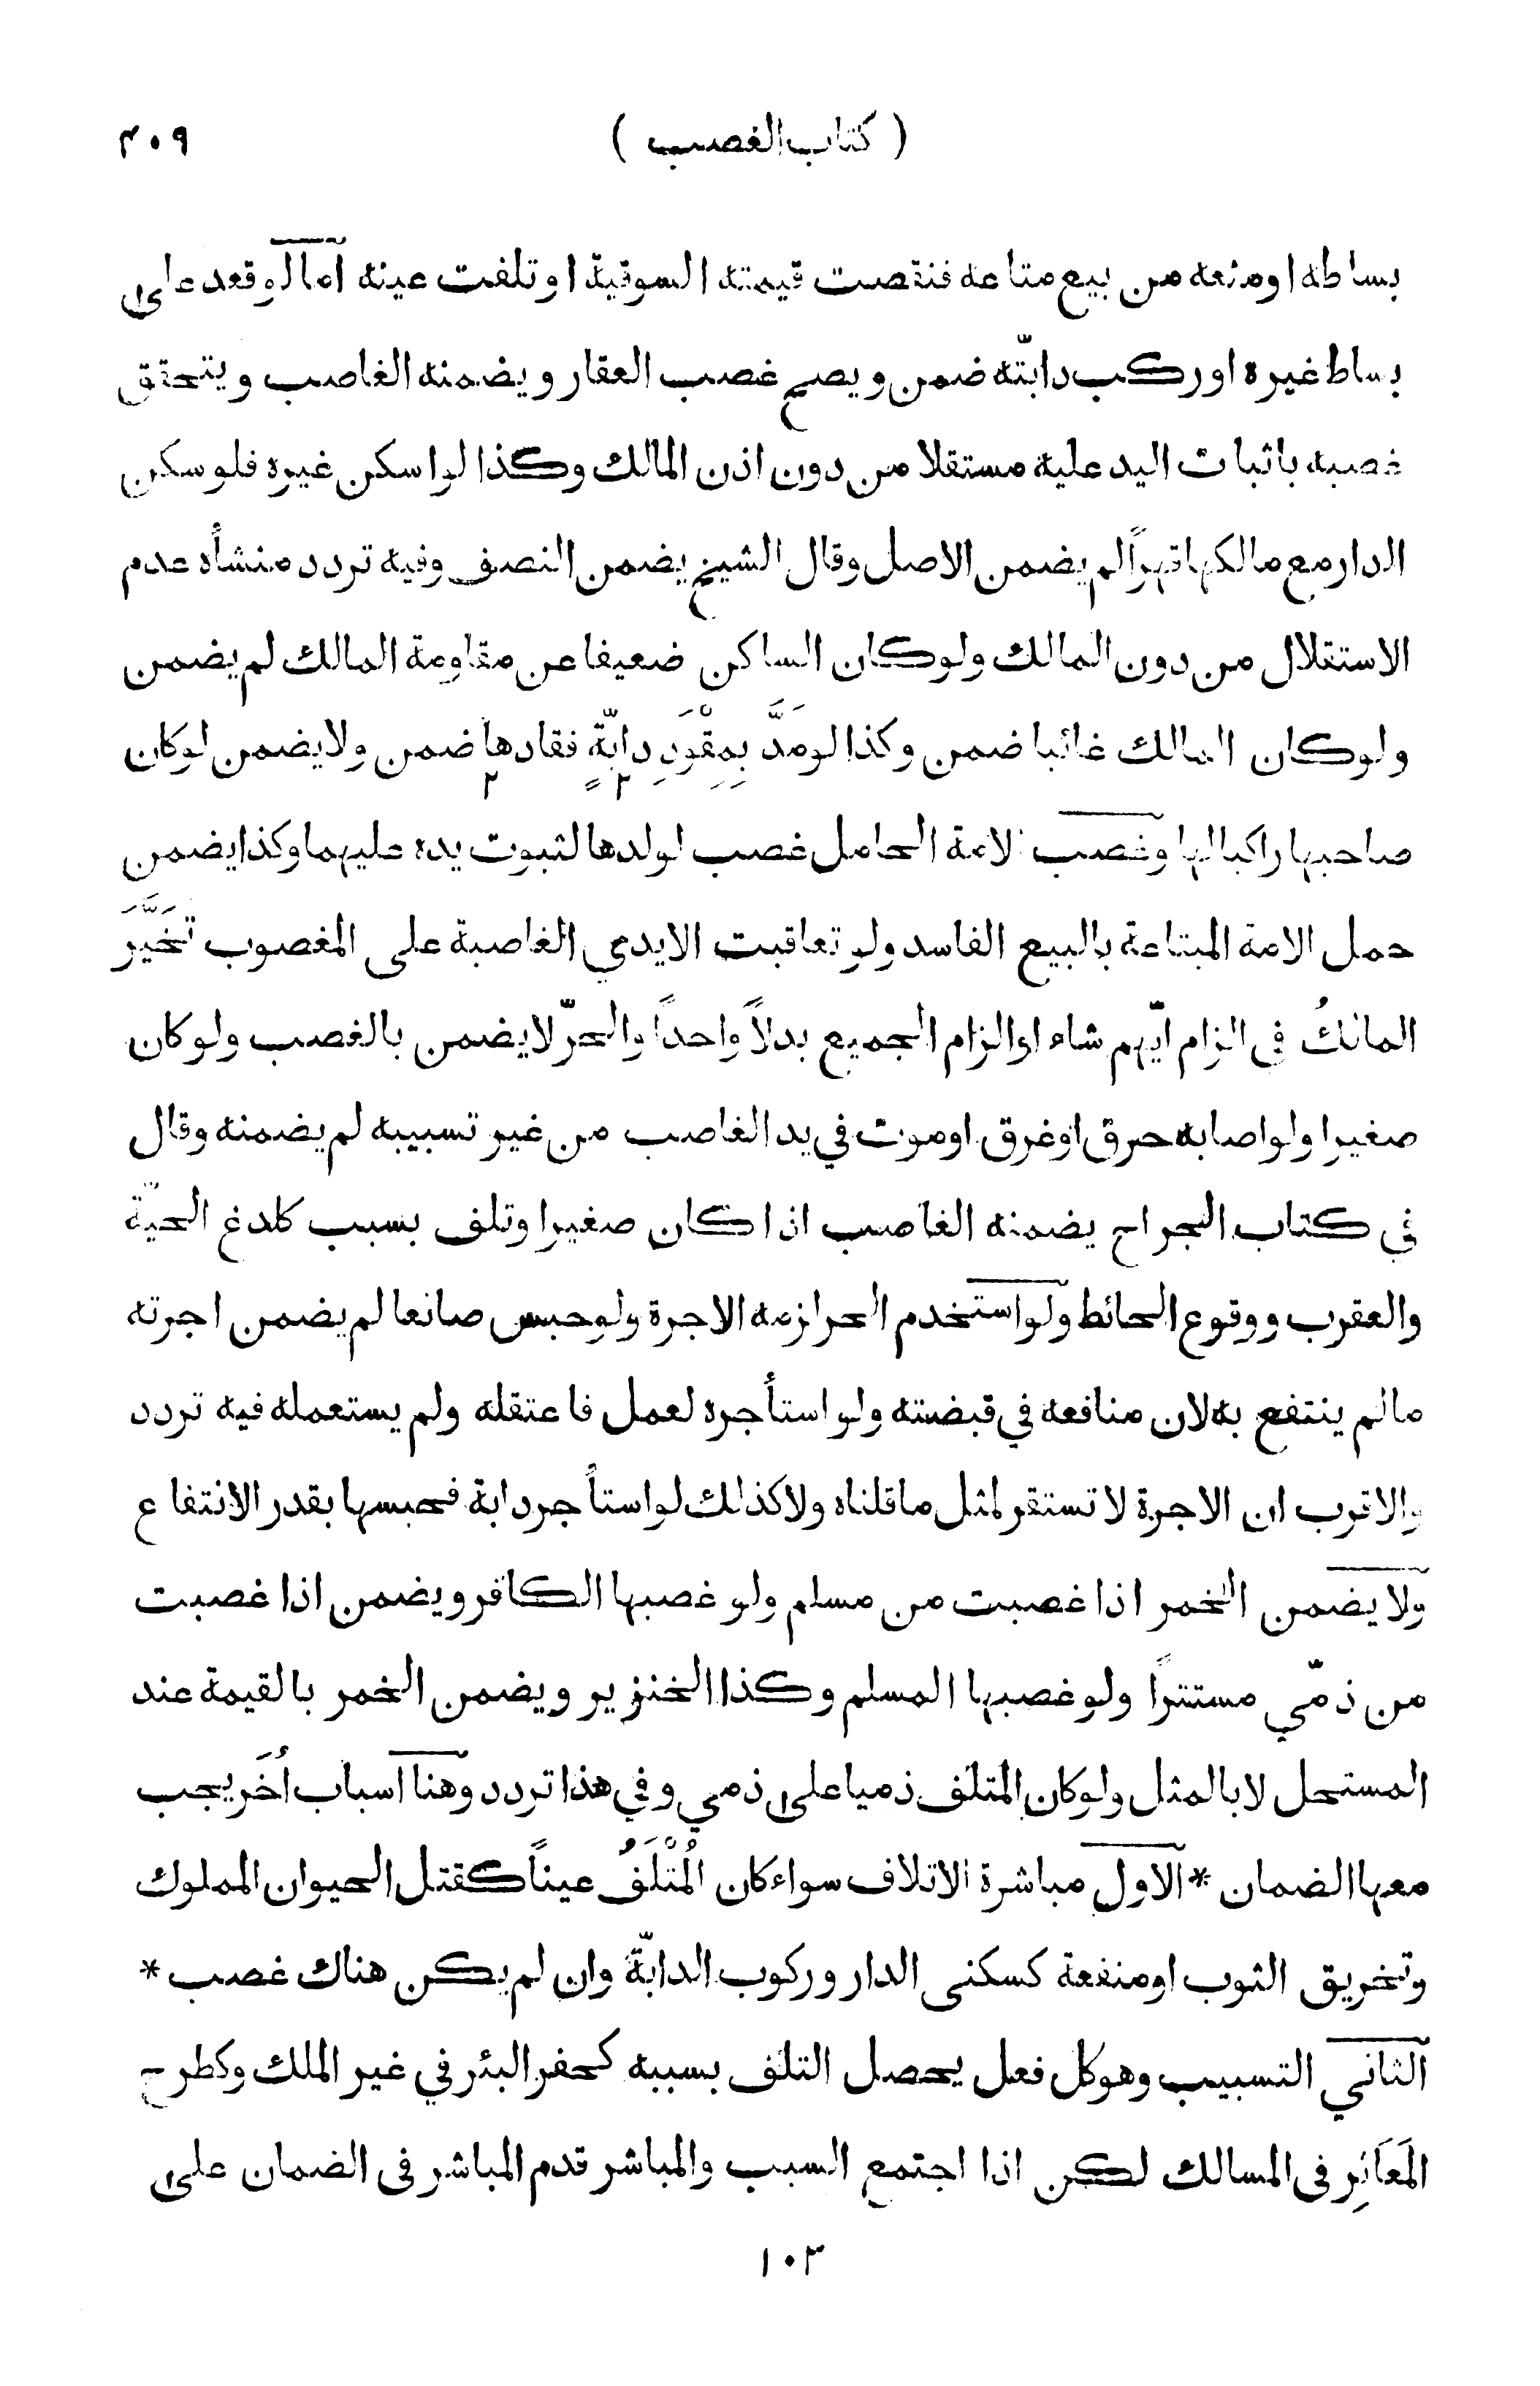 ( كتاب الغصب ) ٤٠٩
بساطه او منعه من بيع متاعه فنقصت قيمته السوقية او تلفت عينه اما لو قعد على
بساط غيره او ركب دابّته ضمن و يصح غصب العقار و يضمنه الغاصب و يتحقق
غصبه باثبات اليد عليه مستقلا من دون اذن المالك وكذا لو اسكن غيره فلو سكن
الدار مع مالكها قهراً لم يضمن الاصل وقال الشيخ يضمن النصف وفيه تردد منشأه عدم
الاستقلال من دون المالك ولو كان الساكن ضعيفا عن مقاومة المالك لم يضمن
ولو كان المالك غائبا ضمن وكذا لو مَدَّ بِمِقْوَدِ دابّةٍ فقادها ضمن ولا يضمن لو كان
صاحبها راكبا لها وغصب الامة الحامل غصب لولدها لثبوت يده عليهما وكذا يضمن
حمل الامة المبتاعة بالبيع الفاسد ولو تعاقبت الايدي الغاصبة على المغصوب تَخَيَّرَ
المالكُ في الزام ايّهم شاء او الزام الجميع بدلاً واحداً والحرّ لا يضمن بالغصب ولو كان
صغيرا ولو اصابه حرق او غرق او موت في يد الغاصب من غير تسبيبه لم يضمنه وقال
في كتاب الجراح يضمنه الغاصب اذا كان صغيرا وتلف بسبب كلدغ الحيّة
والعقرب ووقوع الحائط ولو استخدم الحر لزمه الاجرة ولو حبس صانعا لم يضمن اجرته
ما لم ينتفع به لان منافعه في قبضته ولو استأجره لعمل فاعتقله ولم يستعمله فيه تردد
والاقرب ان الاجرة لا تستقر لمثل ما قلناه ولا كذلك لو استأجر دابة فحبسها بقدر الانتفاع
ولا يضمن الخمر اذا غصبت من مسلم ولو غصبها الكافر ويضمن اذا غصبت
من ذمّي مستتراً ولو غصبها المسلم وكذا الخنزير ويضمن الخمر بالقيمة عند
المستحل لا بالمثل ولو كان المتلف ذميا على ذمي وفي هذا تردد وهنا اسباب اُخَر يجب
معها الضمان * الاول مباشرة الاتلاف سواء كان المُتْلَفُ عيناً كقتل الحيوان المملوك
وتخريق الثوب او منفعة كسكنى الدار وركوب الدابّة وان لم يكن هناك غصب *
الثاني التسبيب وهو كل فعل يحصل التلف بسببه كحفر البئر في غير الملك وكطرح
المَعَاثِر في المسالك لكن اذا اجتمع السبب والمباشر قدم المباشر في الضمان على
١٠٣